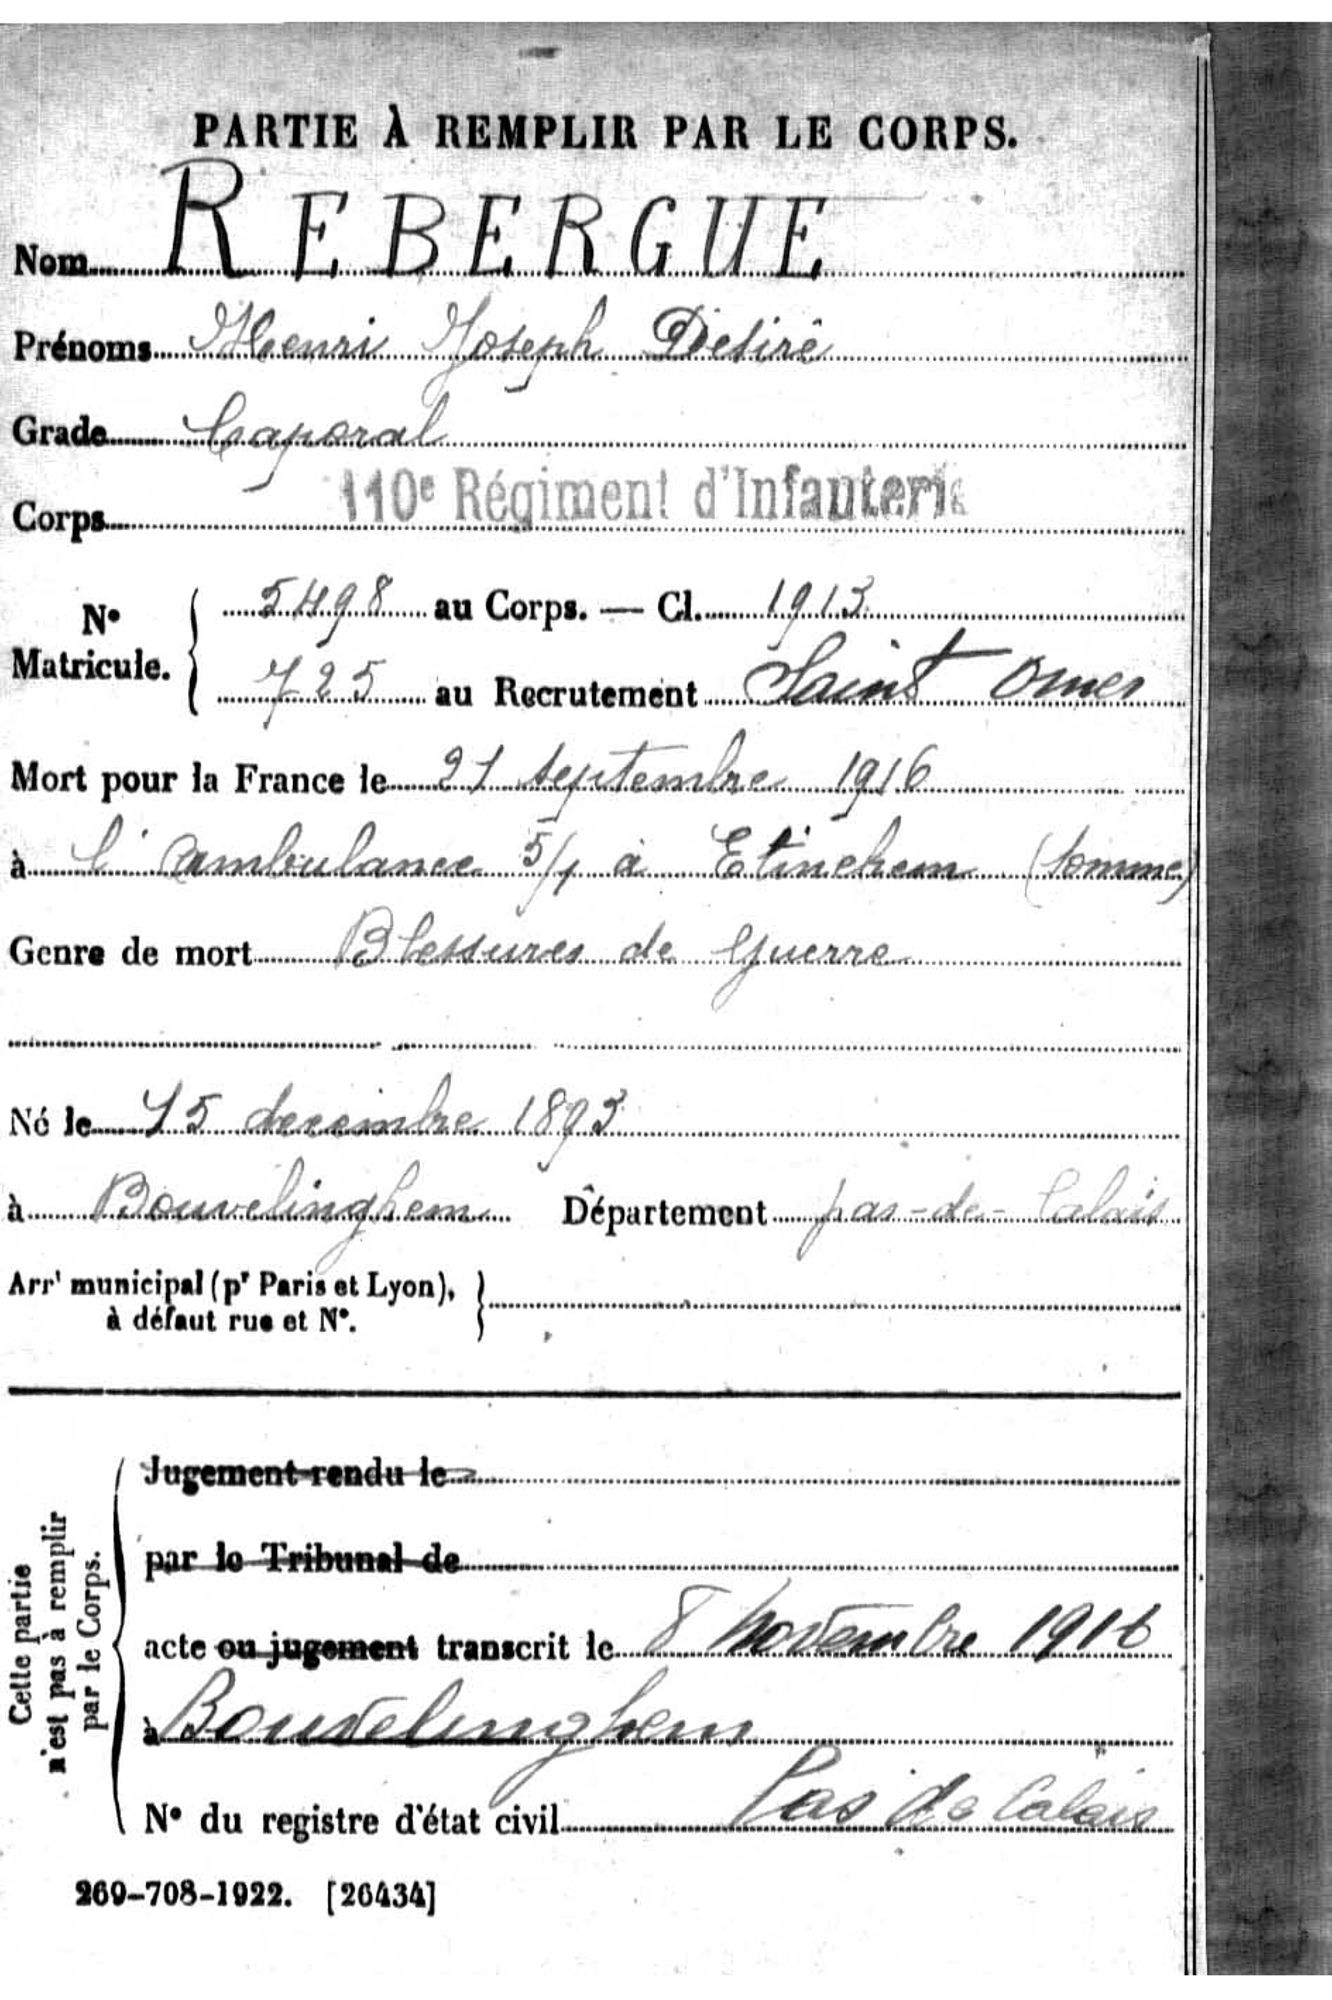 PARTIE À REMPLIR PAR LE CORPS.
Nom REBERGUE
Prénoms Henri Joseph Désiré
Grade Caporal
Corps 110e Régiment d'Infanterie
No Matricule. { 5498 au Corps. — Cl. 1913
725 au Recrutement Saint Omer
Mort pour la France le 21 septembre 1916
à l'ambulance 5/1 à Etinehem (Somme)
Genre de mort Blessures de Guerre
Né le 15 decembre 1893
à Bouvelinghem Département pas-de-Calais
Arrt municipal (pr Paris et Lyon),
à défaut rue et No.
Cette partie
n'est pas à remplir
par le Corps.
Jugement rendu le
par le Tribunal de
acte ou jugement transcrit le 8 Novembre 1916
à Bouvelinghem
No du registre d'état civil Pas de Calais
269-708-1922. [26434]